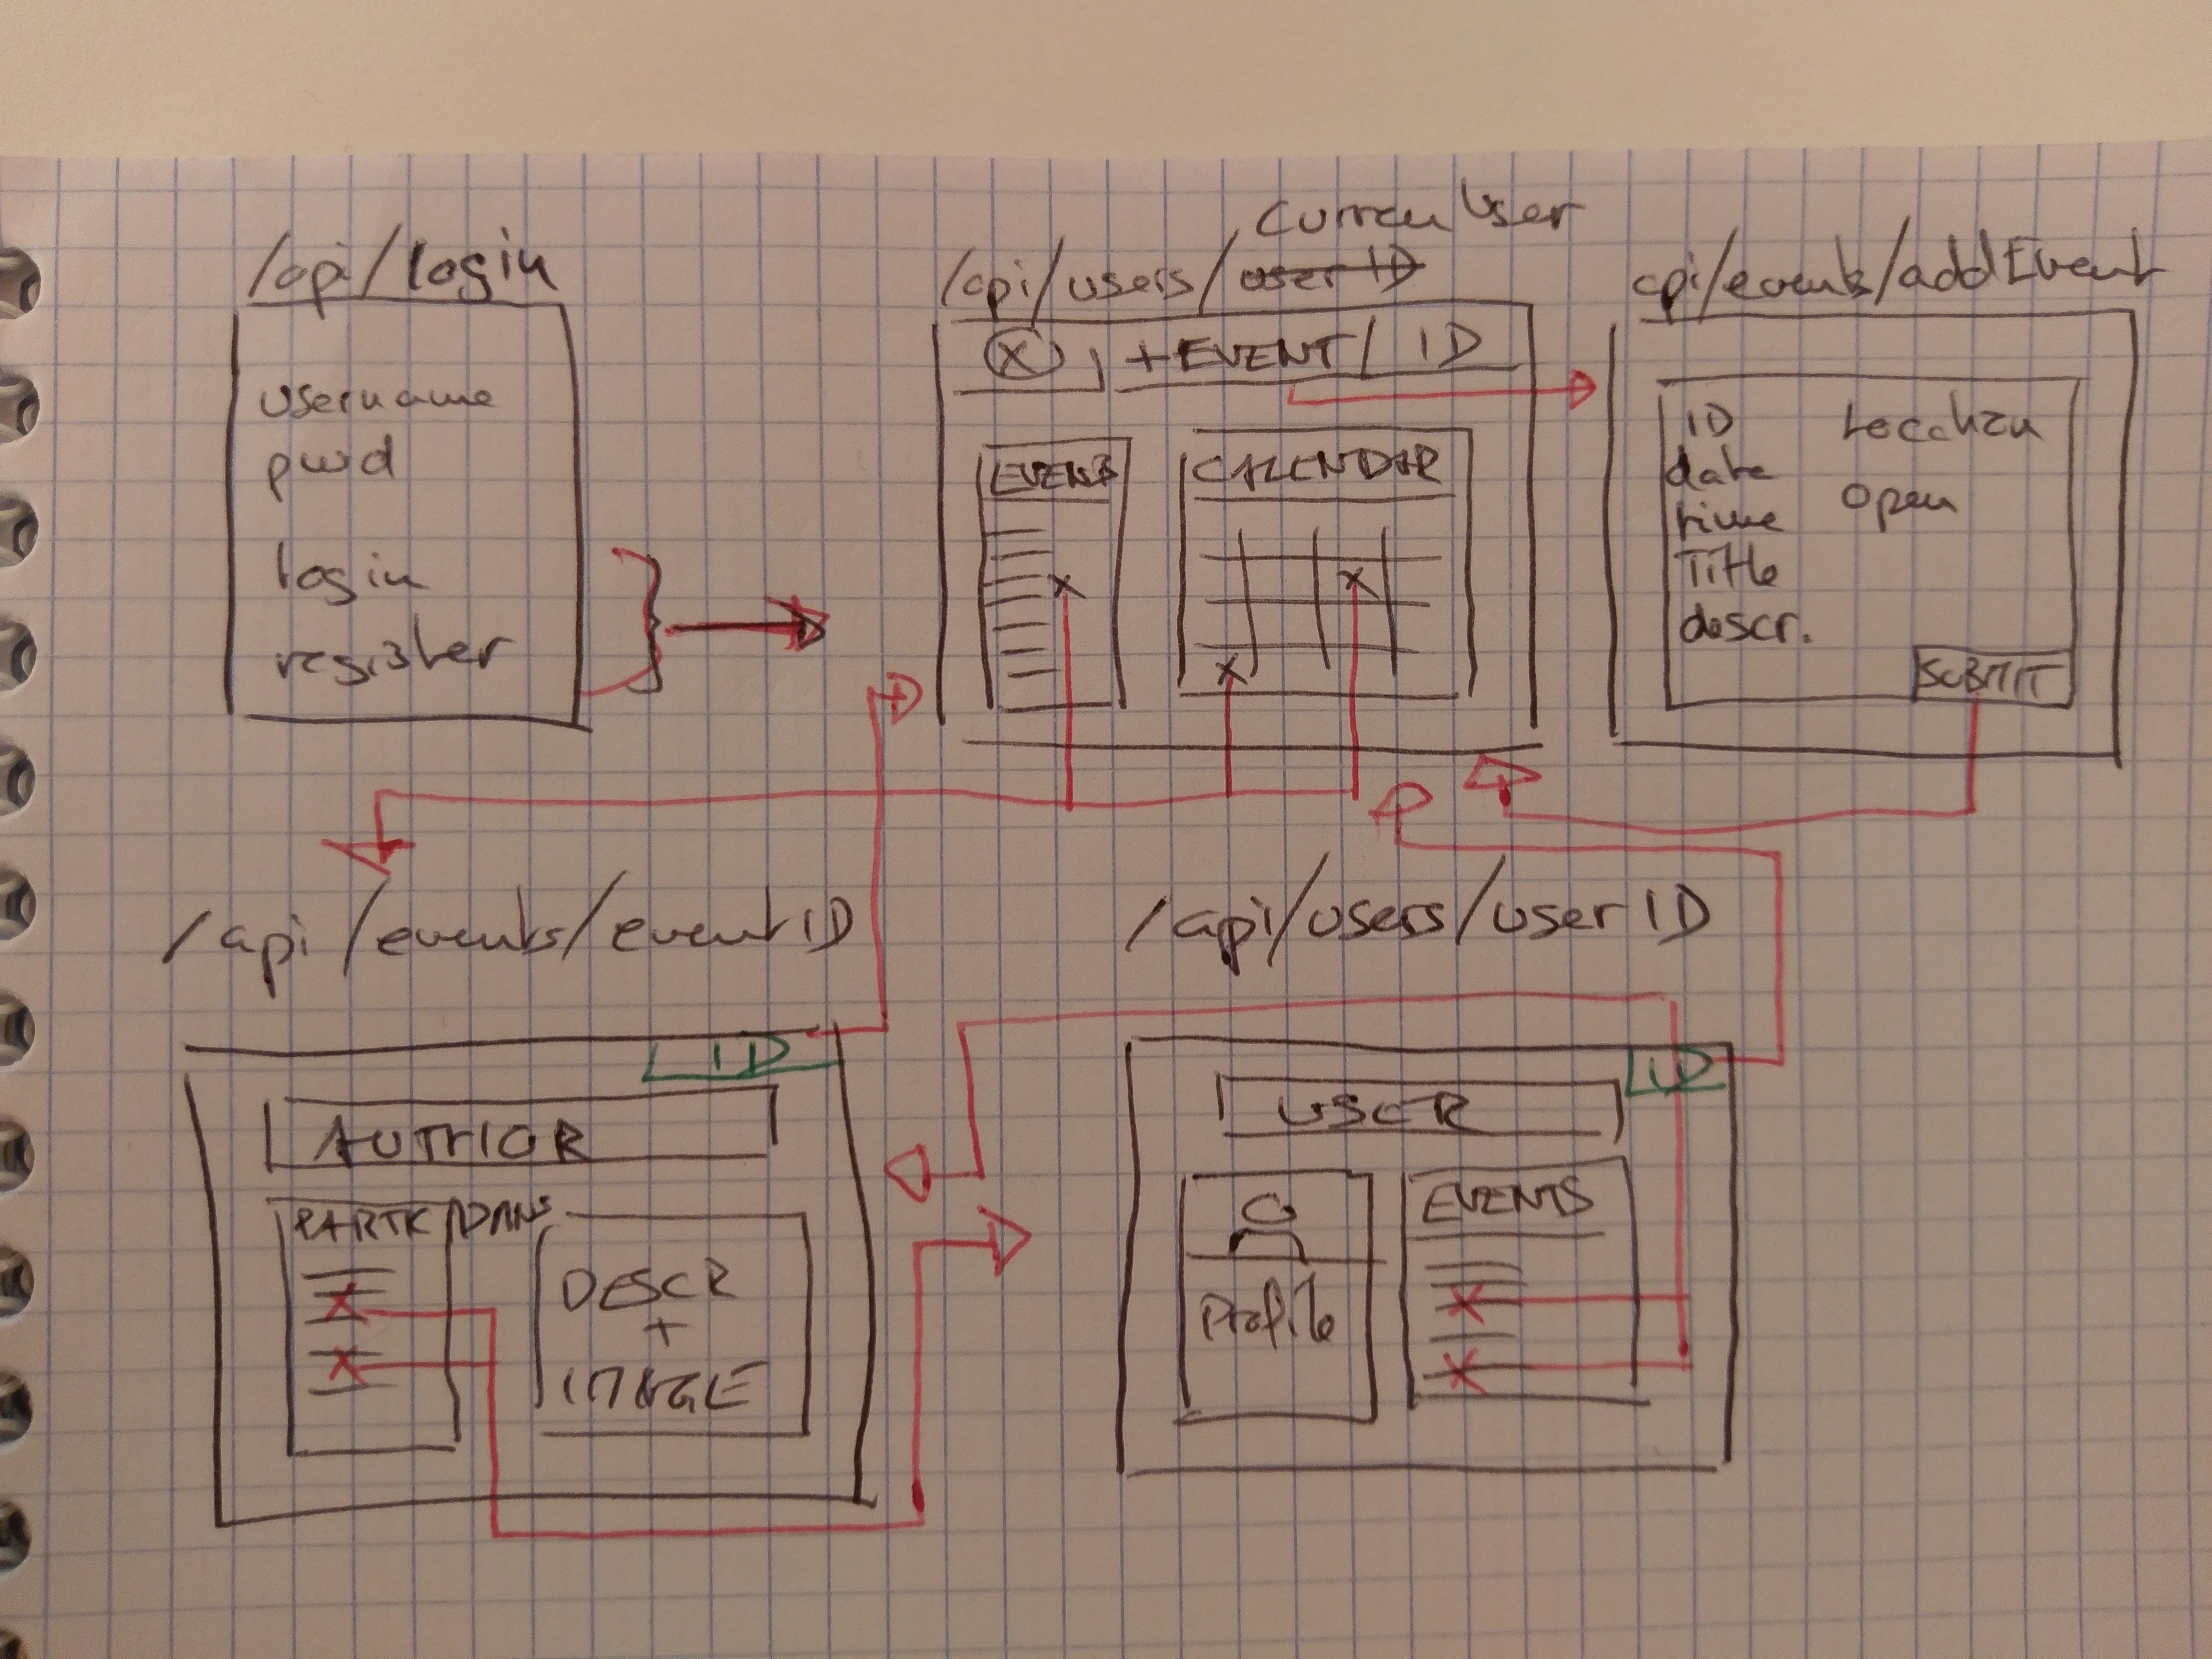 /api/login
username
pwd
login
register
Curren User
/api/users/user ID
X
+EVENT/ ID
EVENTS
CALENDAR
api/events/addEvent
ID
date
time
Title
descr.
Location
open
SUBMIT
/api/events/eventID
ID
AUTHOR
PARTICIPANS
DESCR
+
IMAGE
/api/users/userID
ID
USER
Profile
EVENTS